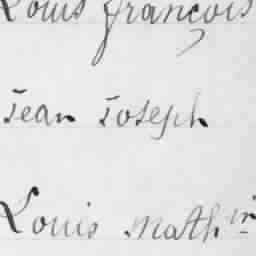 Louis françois
Jean Joseph
Louis Math in